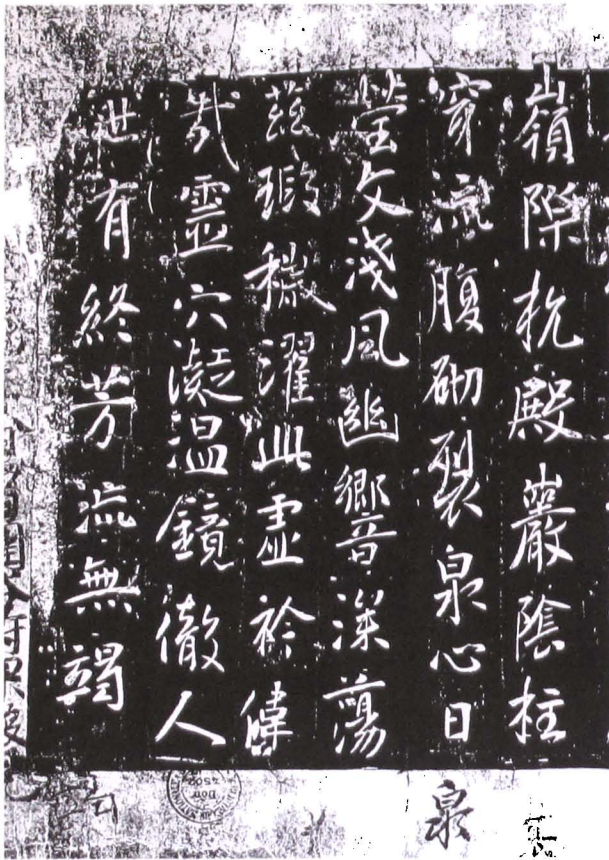 嶺際抗殿巖陰柱
穿流腹砌裂泉心日
瑩文淺風幽響深蕩
茲瑕穢濯此虛衿偉
哉靈穴凝溫鏡徹人
世有終芳流無竭
泉